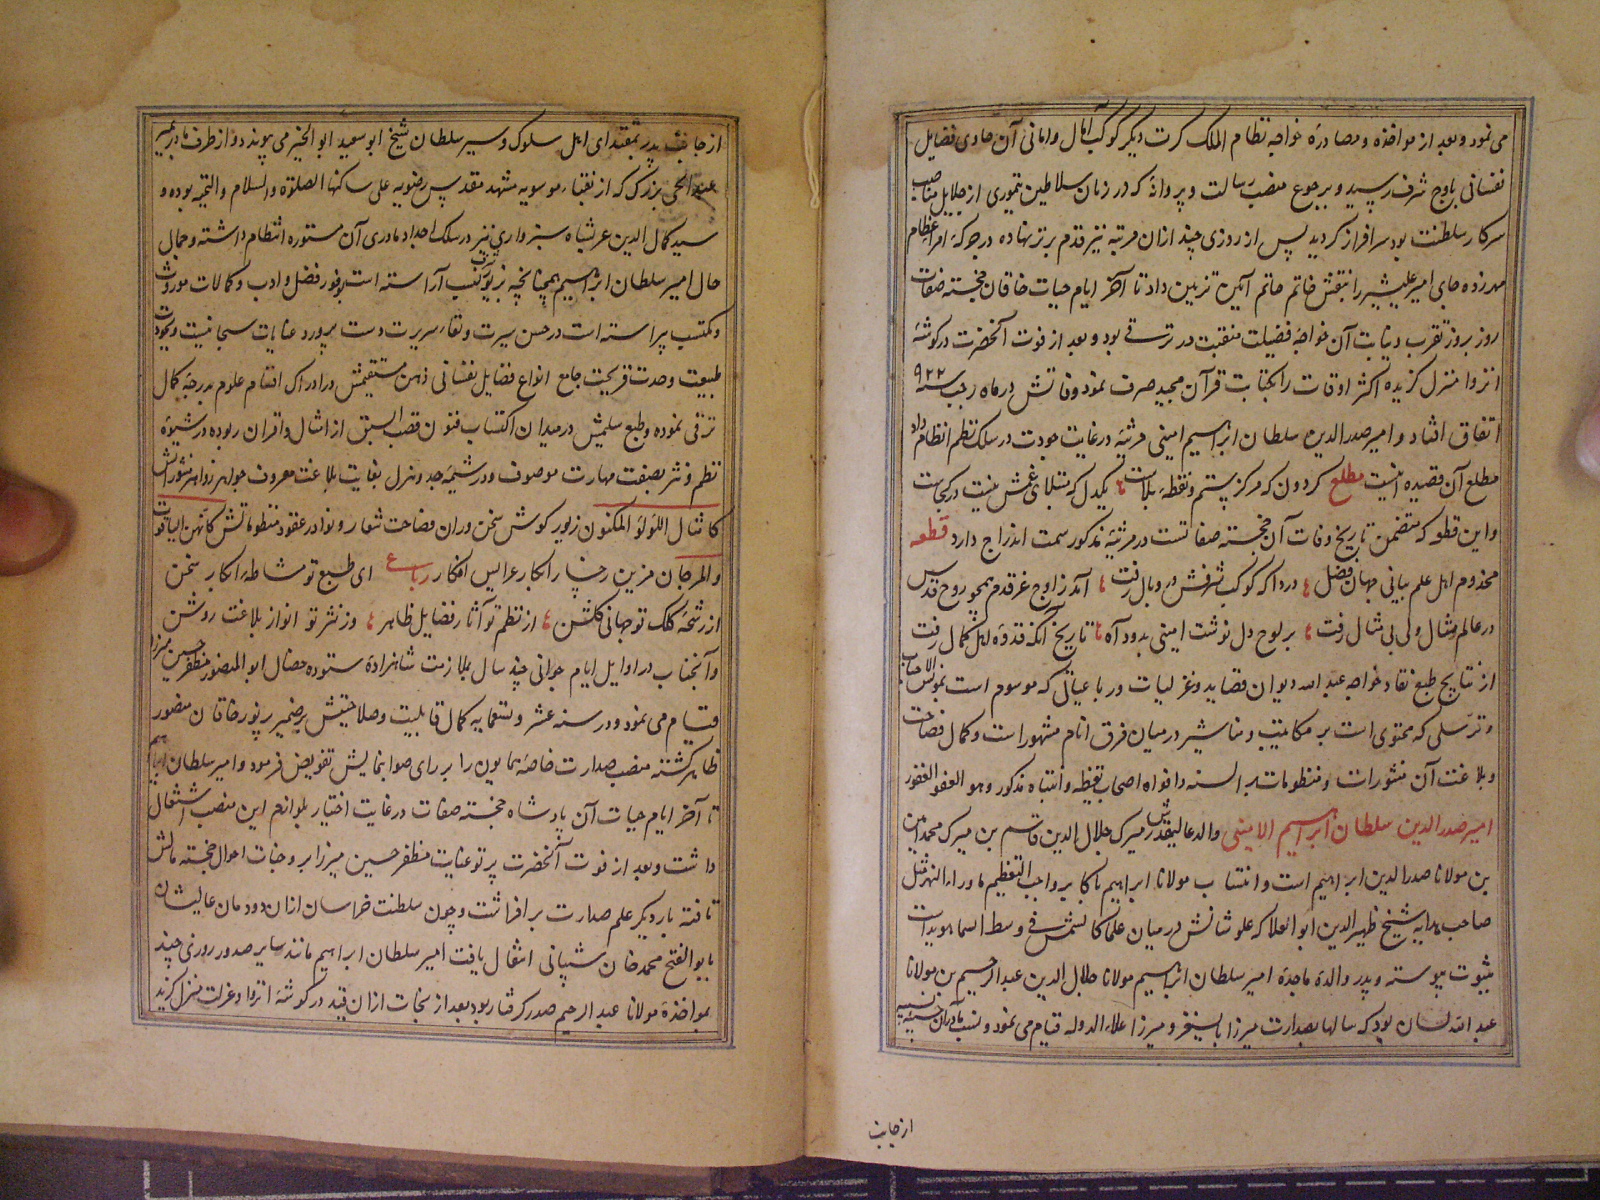 می نمود و بعد از مواخذه و مصادره خواجه نظام الملک کرت دیگر کوکب اقبال وامانی آن حاوی فضایل
نفسانی باوج شرف رسید و برجوع منصب رسالت و پروانه که در زمان سلاطین تیموری از جلایل مناصب
سرکار سلطنت بود سرافراز کردید پس از روزی چند ازان مرتبه نیز قدم برتر نهاده در جرکه امراء عظام
مهر زده جای امیر علیشیر را بنقش خاتم حاتم آئین تزیین داد تا آخر ایام حیات خاقان خجسته صفات
روز بروز تقرب و نیابت آن خواجه فضیلت منقبت در ترقی بود و بعد از فوت آنحضرت در کوشه
انزوا منزل کزیده اکثر اوقات را بکتابت قرآن مجید صرف نمود وفاتش در ماه رجب سنه ۹۲۲
اتفاق افتاد و امیر صدرالدین سلطان ابراهیم امینی مرثیه در غایت جودت در سلک نظم انتظام داد
مطلع آن قصیده اینست مطلع کردون که مرکز ستم و نقطه بلاست یکدل که مبتلای غمش نیست در کجاست
و این قطعه که متضمن تاریخ وفات آن خجسته صفاتست در مرثیه مذکور سمت اندراج دارد قطعه
مخدوم اهل علم بیانی جهان فضل دردا که کوکب شرفش در وبال رفت آمد ز اوج عز قدم همچو روح قدس
در عالم مثال ولی بی مثال رفت بر لوح دل نوشت امینی بدود آه تاریخ آنکه قدوه اهل کمال رفت
از نتایج طبع نقاد خواجه عبد الله دیوان قصاید و غزلیات و رباعیاتی که موسوم است بمونس الاحباب
و ترسلی که محتوی است بر مکاتیب و مناشیر در میان فرق انام مشهور است و کمال فصاحت
و بلاغت آن منثورات و منظومات بر السنه و افواه اصحاب تیقظ و انتباه مذکور و هو العفو الغفور
امیر صدرالدین سلطان ابراهیم الامینی والد عالیقدرش میرک جلال الدین قاسم بن میرک محمد امین
بن مولانا صدرالدین ابراهیم است و انتساب مولانا ابراهیم باکابر واجب التعظیم ماوراء النهر مثل
صاحب هدایه شیخ ظهیر الدین ابو العلا که علو شانش در میان علما کالشمس فی وسط السماء هویداست
بثبوت پیوسته و پدر والده ماجده امیر سلطان ابراهیم مولانا جلال الدین عبد الرحیم بن مولانا
عبد الله لسان بود که سالها بصدارت میرزا بایسنغر و میرزا علاء الدوله قیام می نمود و نسب
از جانب
از جانب پدر بمقتدای اهل سلوک و سیر سلطان شیخ ابو سعید ابو الخیر می پیوندد و از طرف مادر بمیر
عبد الحی بزرک که از نقباء موسویه مشهد مقدس رضویه علی ساکنها الصلوة والسلام والتحیه بوده و
سید کمال الدین عربشاه سبزواری نیز در سلک اجداد مادری آن مستوره انتظام داشته و جمال
حال امیر سلطان ابراهیم همچنانچه بزیور شرف نسب آراسته است بوفور فضل و ادب و کمالات موروث
و مکتسب پیراسته است در حسن سیرت و نقاء سریرت دست پرورد عنایات سبحانیست و بجودت
طبیعت و حدت قریحت جامع انواع فضایل نفسانی ذهن مستقیمش در ادراک اقسام علوم بدرجه کمال
ترقی نموده و طبع سلیمش در میدان اکتساب فنون قصب السبق از امثال و اقران ربوده در شیوه
نظم و نثر بصفت مهارت موصوف و در شیمه جد و هزل بغایت بلاغت معروف جواهر زواهر منثوراتش
کامثال اللولؤ المکنون زیور کوش سخن وران فصاحت شعار و نوادر عقود منظوماتش کانهن الیاقوت
والمرجان مزین رخسار ابکار عرایس افکار رباعی ای طبع تو مشاطه ابکار سخن
از رشحه کلک تو جهانی کلشن از نظم تو آثار فضایل ظاهر وز نثر تو انوار بلاغت روشن
و آنجناب در اوایل ایام جوانی چند سال بملازمت شاهزاده ستوده خصال ابو المنصور مظفر حسین میرزا
قیام می نمود و در سنه عشر و تسعمایه کمال قابلیت و صلاحیتش بر ضمیر پر نور خاقان منصور
ظاهر کشته منصب صدارت خاصه همایون را برای صوابنمایش تفویض فرمود و امیر سلطان ابراهیم
تا آخر ایام حیات آن پادشاه خجسته صفات در غایت اختیار بلوازم این منصب اشتغال
داشت و بعد از فوت آنحضرت پرتو عنایت مظفر حسین میرزا بر وجنات احوال خجسته مآلش
تافته بار دیکر علم صدارت برافراشت و چون سلطنت خراسان ازان دودمان عالیشان
بابو الفتح محمد خان شیبانی انتقال یافت امیر سلطان ابراهیم مانند سایر صدور روزی چند
بمواخذه مولانا عبد الرحیم صدر کرفتار بود بعد از نجات ازان قید در کوشه انزوا و عزلت منزل کزید